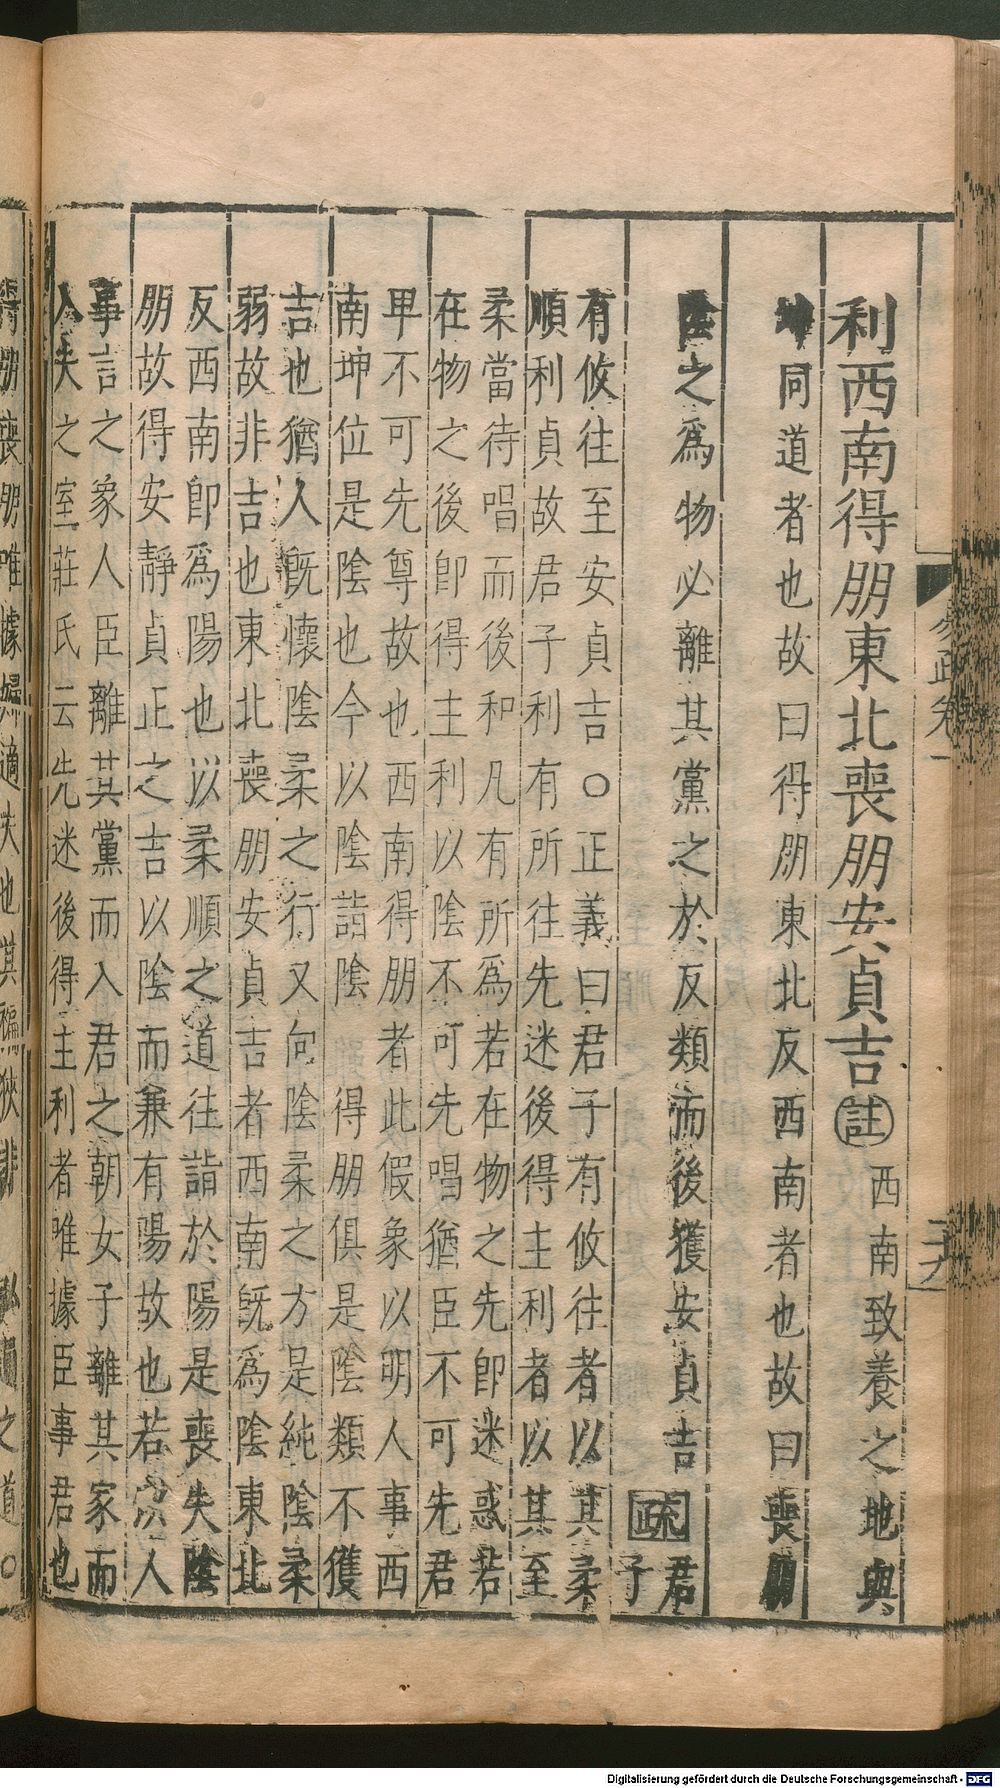 利西南得朋東北喪朋安貞吉註西南致養之地與
坤同道者也故曰得朋東北反西南者也故曰喪朋
陰之爲物必離其黨之於反類而後獲安貞吉疏君子
有攸往至安貞吉○正義曰君子有攸往者以其柔
順利貞故君子利有所往先迷後得主利者以其至
柔當待唱而後和凡有所爲若在物之先卽迷惑若
在物之後卽得主利以陰不可先唱猶臣不可先君
卑不可先尊故也西南得朋者此假象以明人事西
南坤位是陰也今以陰詣陰 得朋俱是陰類不獲
吉也猶人旣懷陰柔之行又向陰柔之方是純陰柔
弱故非吉也東北喪朋安貞吉者西南旣爲陰東北
反西南卽爲陽也以柔順之道往詣於陽是喪失陰
朋故得安靜貞正之吉以陰而兼有陽故也若以人
事言之象人臣離其黨而入君之朝女子離其家而
入夫之室莊氏云先迷後得主利者唯據臣事君也
得朋喪朋唯據婦適夫也其褊狹非 弘通之道○
易疏卷一
二十六
Digitalisierung gefördert durch die Deutsche Forschungsgemeinschaft - DFG